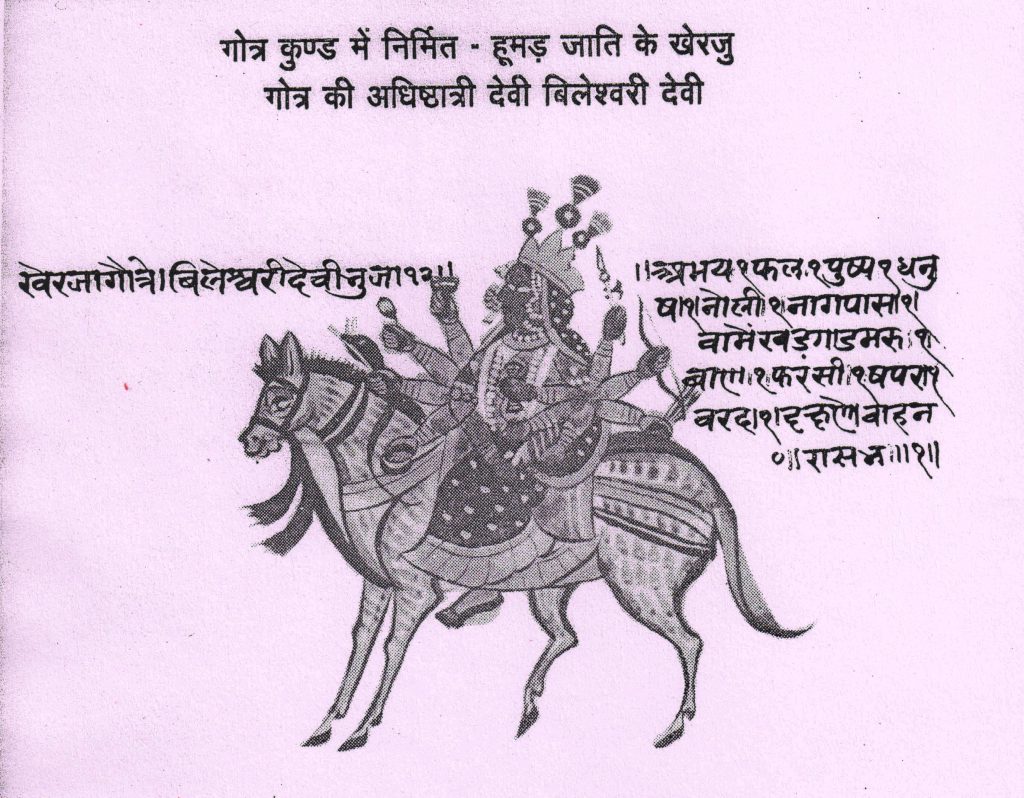 गोत्र कुण्ड में निर्मित - हूमड़ जाति के खेरजु
गोत्र की अधिष्ठात्री देवी बिलेश्वरी देवी
खेरजागौत्रे।बिलेश्वरीदेवीनुजा१२॥
॥अभय१फल१पुष्प१धनु
षा१नोली१नागपास१
वामेंखड़गाडमरु१
बाण१फरंसी१षपरा१
वरदा१ वाहन
०॥रासभ॥१॥